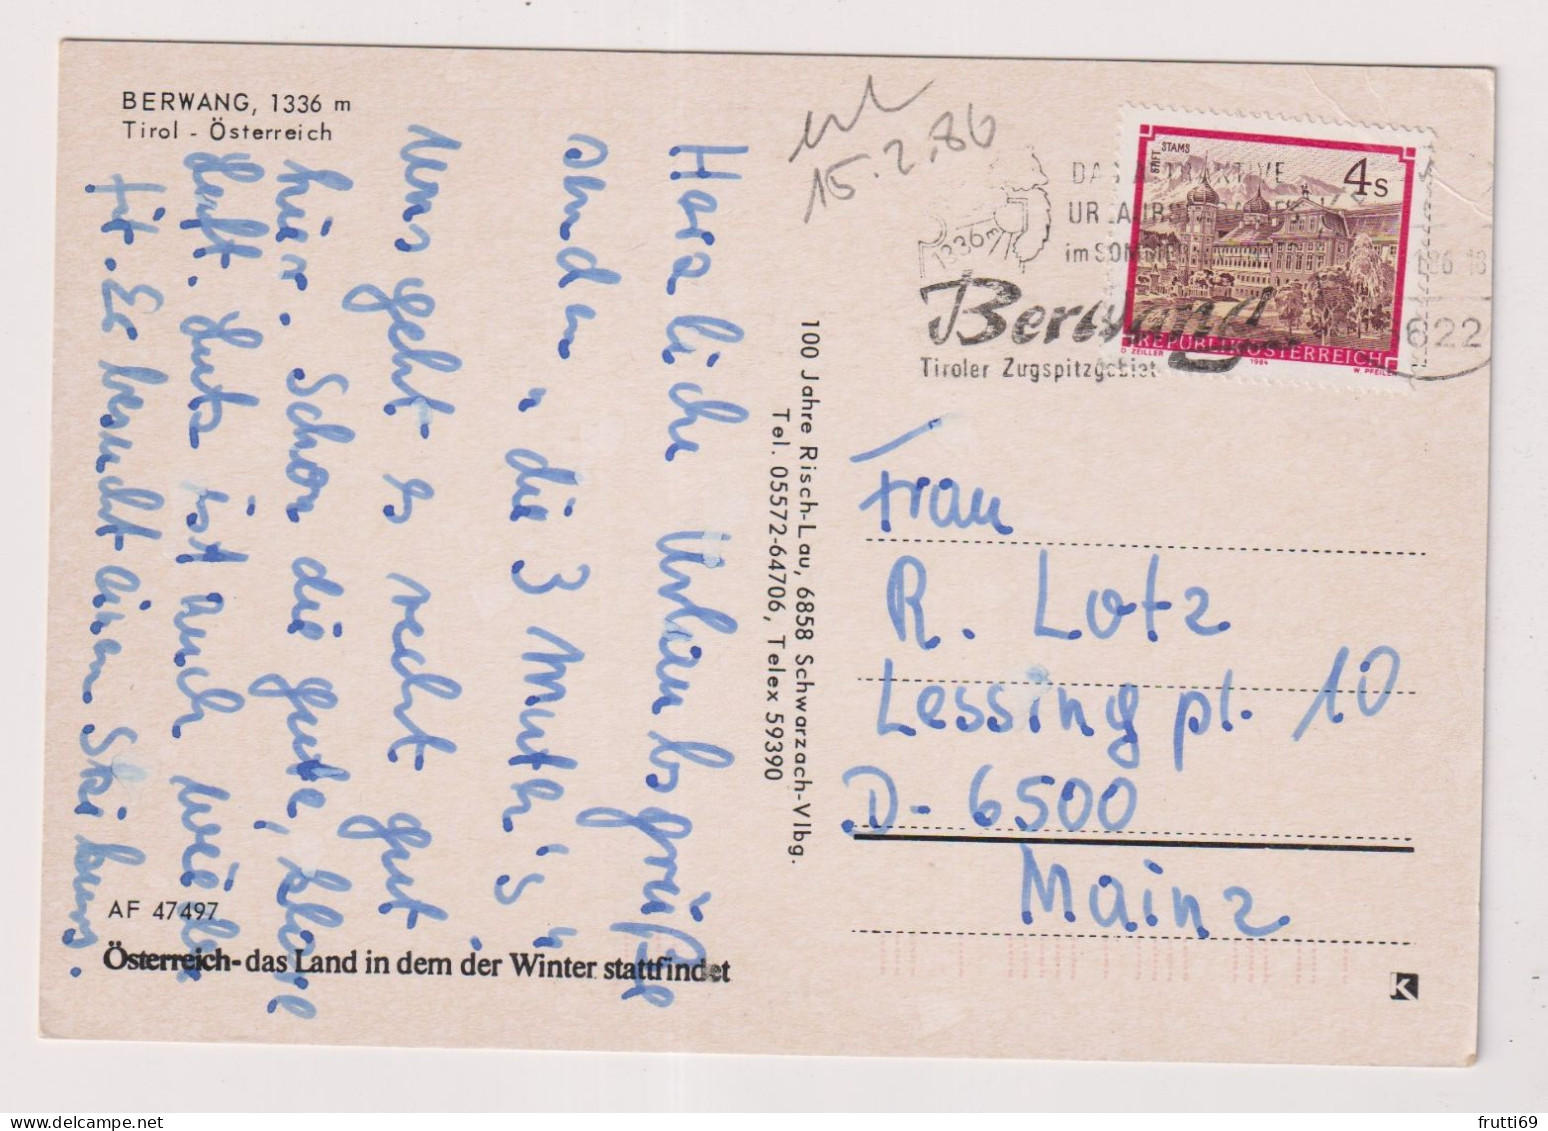 BERWANG, 1336 m
Tirol - Österreich
erl
15.2.86
1336 m
DAS ATTRAKTIVE
URLAUBS
im SOMMER
Berwang
Tiroler Zugspitzgebiet
86-18
622
STIFT STAMS
4 S
REPUBLIK ÖSTERREICH
O. ZEILLER 1984 W. PFEILER
Herzliche Urlaubsgrüße
senden "die 3 Muth's"
Uns geht es recht gut
hier. Schon die gute, klare
Luft. Lutz ist auch wieder
fit. Er besucht einen Skikurs.
100 Jahre Risch-Lau, 6858 Schwarzach-Vlbg.
Tel. 05572-64706, Telex 59390
Frau
R. Lotz
Lessingpl. 10
D-6500
Mainz
AF 47497
Österreich-das Land in dem der Winter stattfindet
K
frutti69